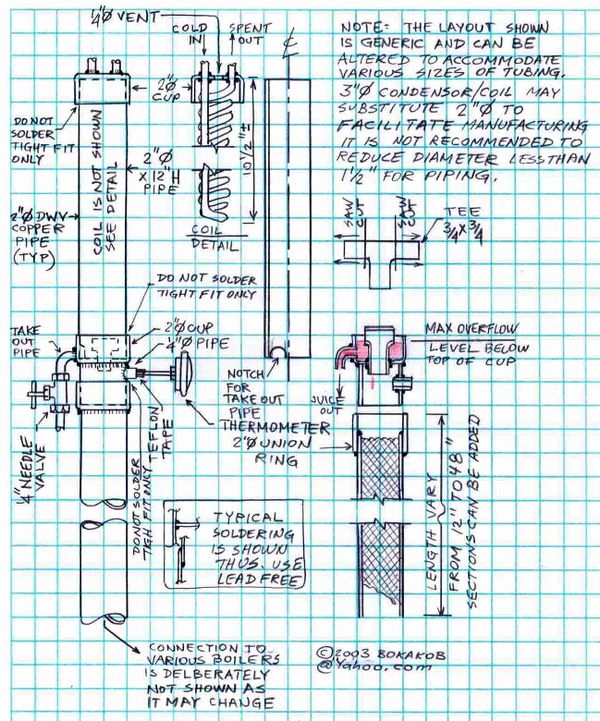 1/4"Ø VENT
COLD
IN
SPENT
OUT
℄
NOTE: THE LAYOUT SHOWN
IS GENERIC AND CAN BE
ALTERED TO ACCOMMODATE
VARIOUS SIZES OF TUBING.
3"Ø CONDENSOR/COIL MAY
SUBSTITUTE 2"Ø TO
FACILITATE MANUFACTURING
IT IS NOT RECOMMENDED TO
REDUCE DIAMETER LESS THAN
1 1/2" FOR PIPING.
2"Ø
CUP
DO NOT
SOLDER
TIGHT FIT
ONLY
COIL IS NOT SHOWN
SEE DETAIL
2"Ø
X 12"H
PIPE
10 1/2"±
COIL
DETAIL
2"Ø DWV
COPPER
PIPE
(TYP)
SAW
CUT
SAW
CUT
TEE
3/4 X 3/4
DO NOT SOLDER
TIGHT FIT ONLY
TAKE
OUT
PIPE
2"Ø CUP
1/4"Ø PIPE
NOTCH
FOR
TAKE OUT
PIPE
MAX OVERFLOW
LEVEL BELOW
TOP OF CUP
JUICE
OUT
THERMOMETER
2"Ø UNION
RING
1/4" NEEDLE
VALVE
DO NOT SOLDER
TIGH FIT ONLY
TEFLON
TAPE
TYPICAL
SOLDERING
IS SHOWN
THUS. USE
LEAD FREE
LENGTH VARY
FROM 12" TO 48"
SECTIONS CAN BE ADDED
CONNECTION TO
VARIOUS BOILERS
IS DELBERATELY
NOT SHOWN AS
IT MAY CHANGE
©2003 BOKAKOB
@Yahoo.com